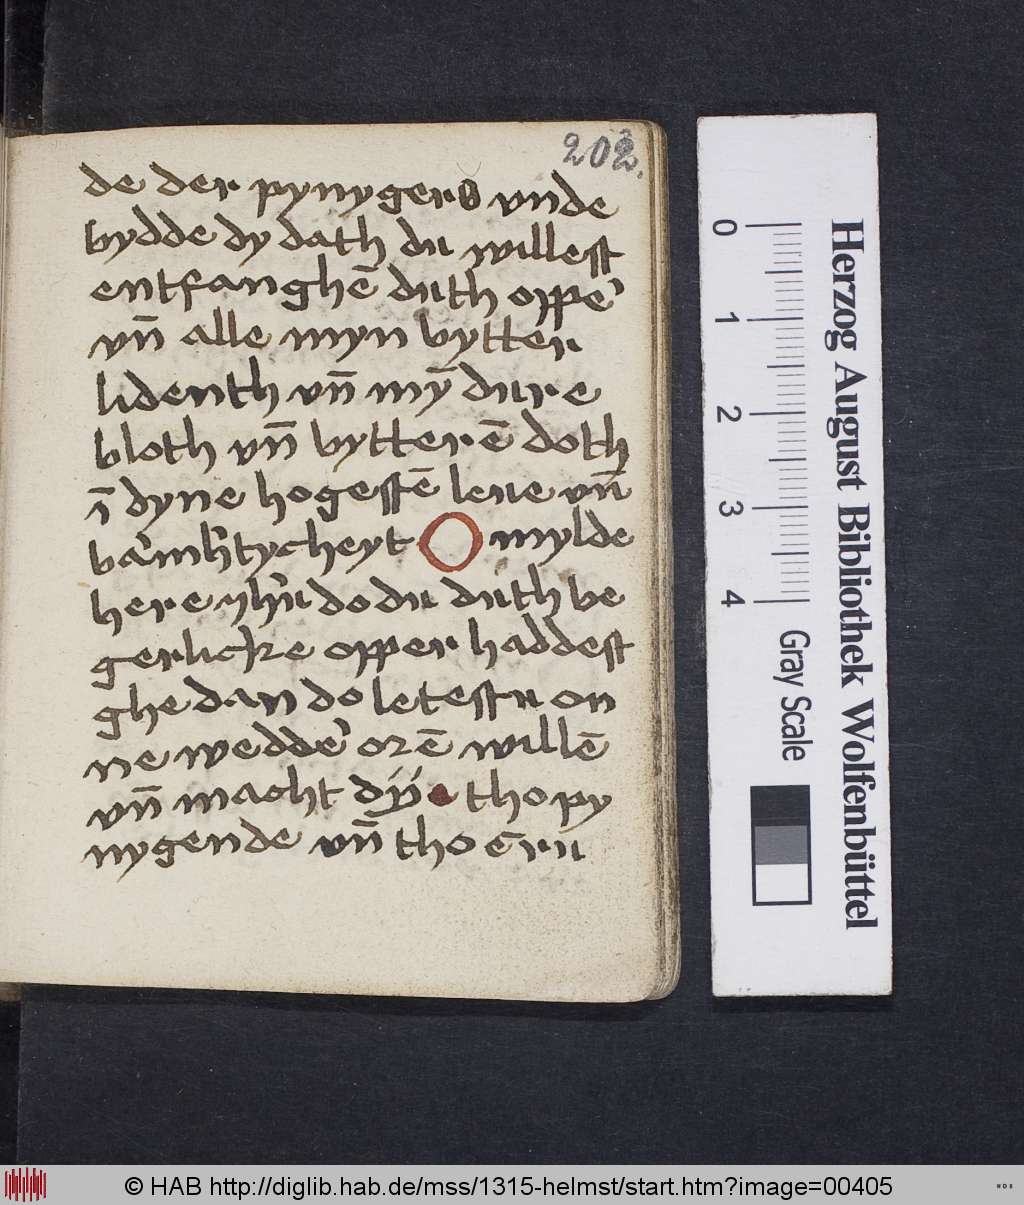 202.
de der pynygers vnde
bydde dy dath du willest
entfanghē duth oppeʾ
vn̄ alle myn bytter
lidenth vn̄ mȳ dure
bloth vn̄ bytterē doth
ī dyne hogestē leue vn̄
bāmhʾtycheyt O mylde
here yhʾu do du duth be
gerlicke opper haddest
ghe dan do letestu on
ne weddeʾ orē willē
vn̄ macht dÿ tho py
nygende vn̄ tho cru
0
1
2
3
4
Gray Scale
Herzog August Bibliothek Wolfenbüttel
© HAB http://diglib.hab.de/mss/1315-helmst/start.htm?image=00405